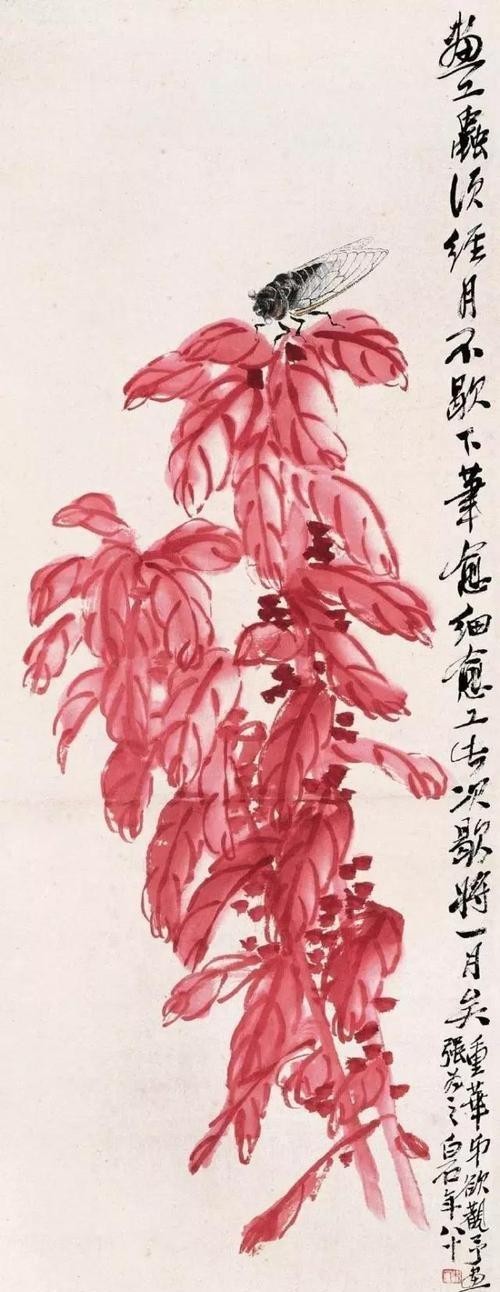 畫工蟲須經月不歇下筆愈細愈工此次歇將一月矣重華弟欲觀予畫
強為之白石年八十